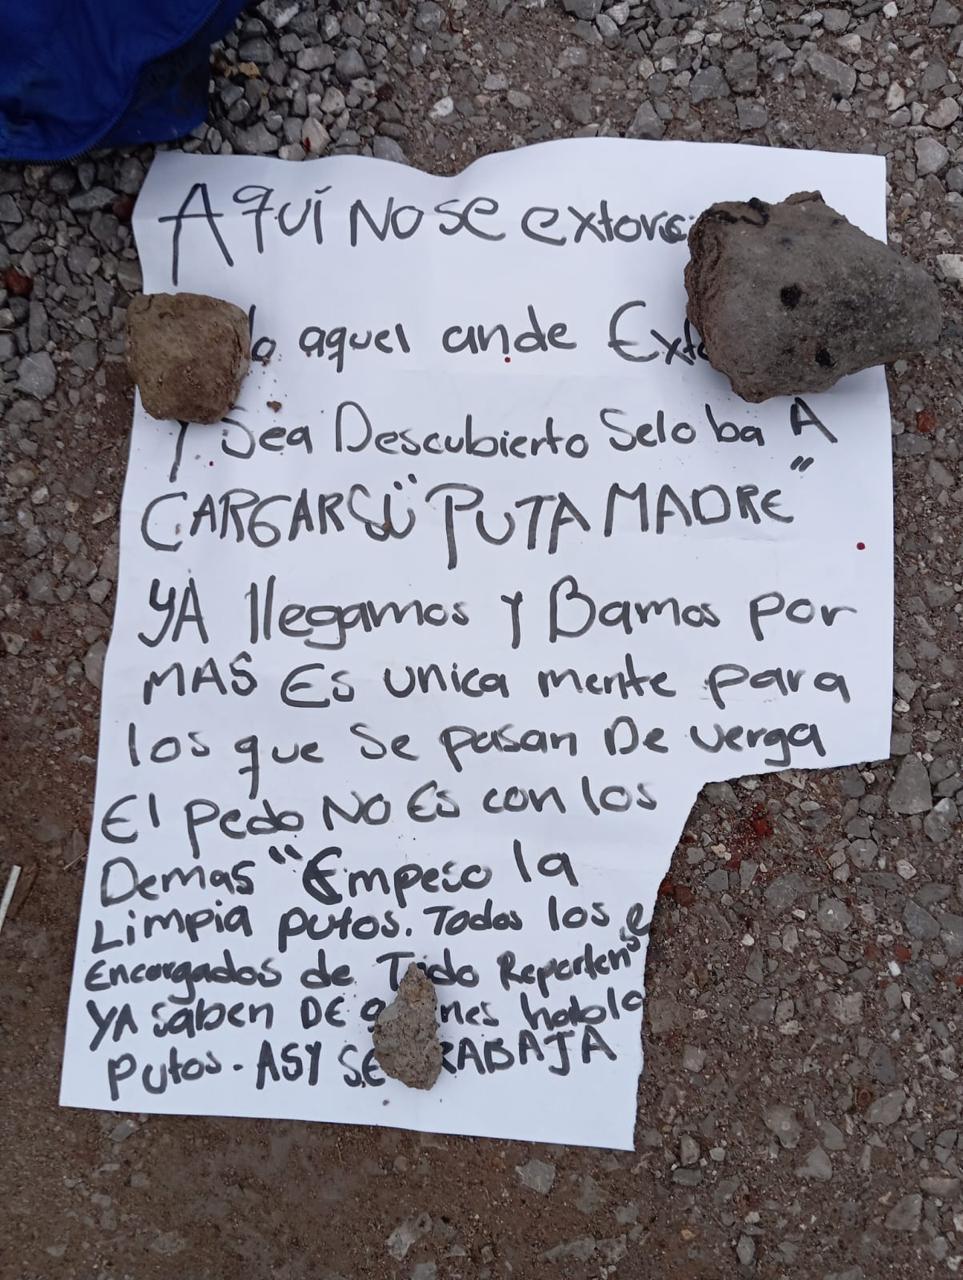 AQUÍ NO SE extors
aquel ande Ext
Y Sea Descubierto Selo ba A
CARGAR SU "PUTA MADRE"
YA llegamos Y Bamos por
MAS Es unica mente para
los que Se pasan De verga
El pedo NO Es con los
Demas "Empeso la
Limpia putos. Todos los
Encargados de Todo Reportense
YA saben DE hablo
putos. ASY SE RABAJA